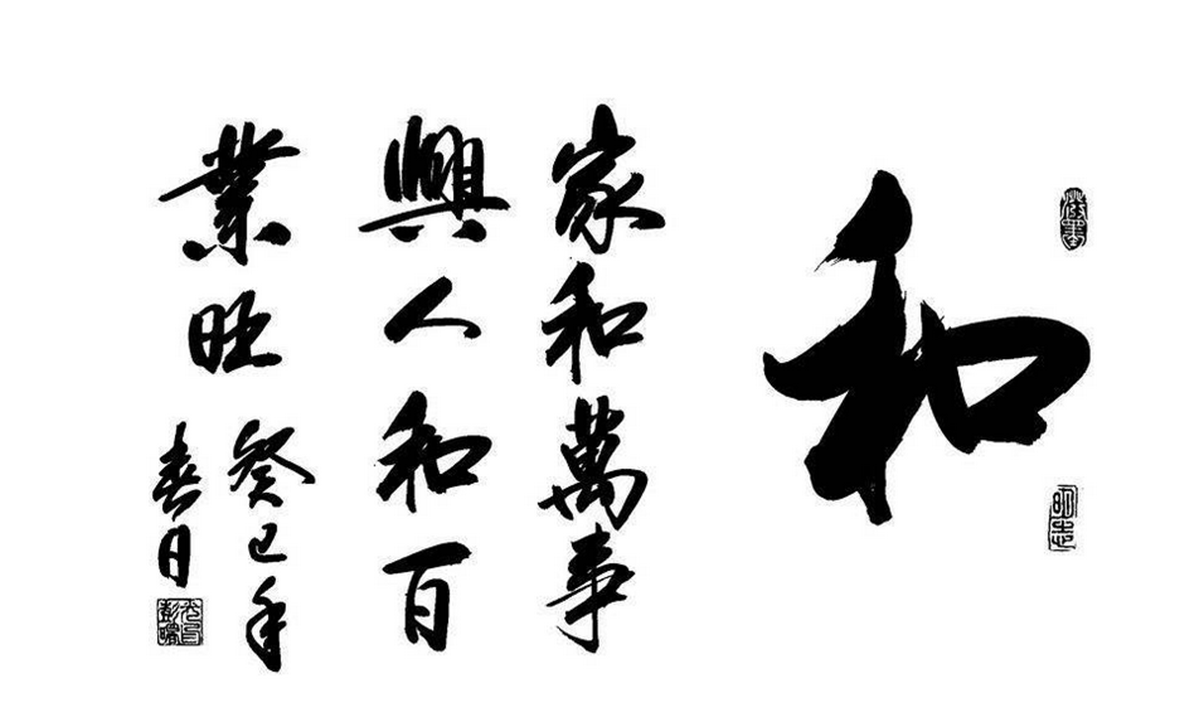 和
家和萬事
興人和百
業旺
癸巳年
春日